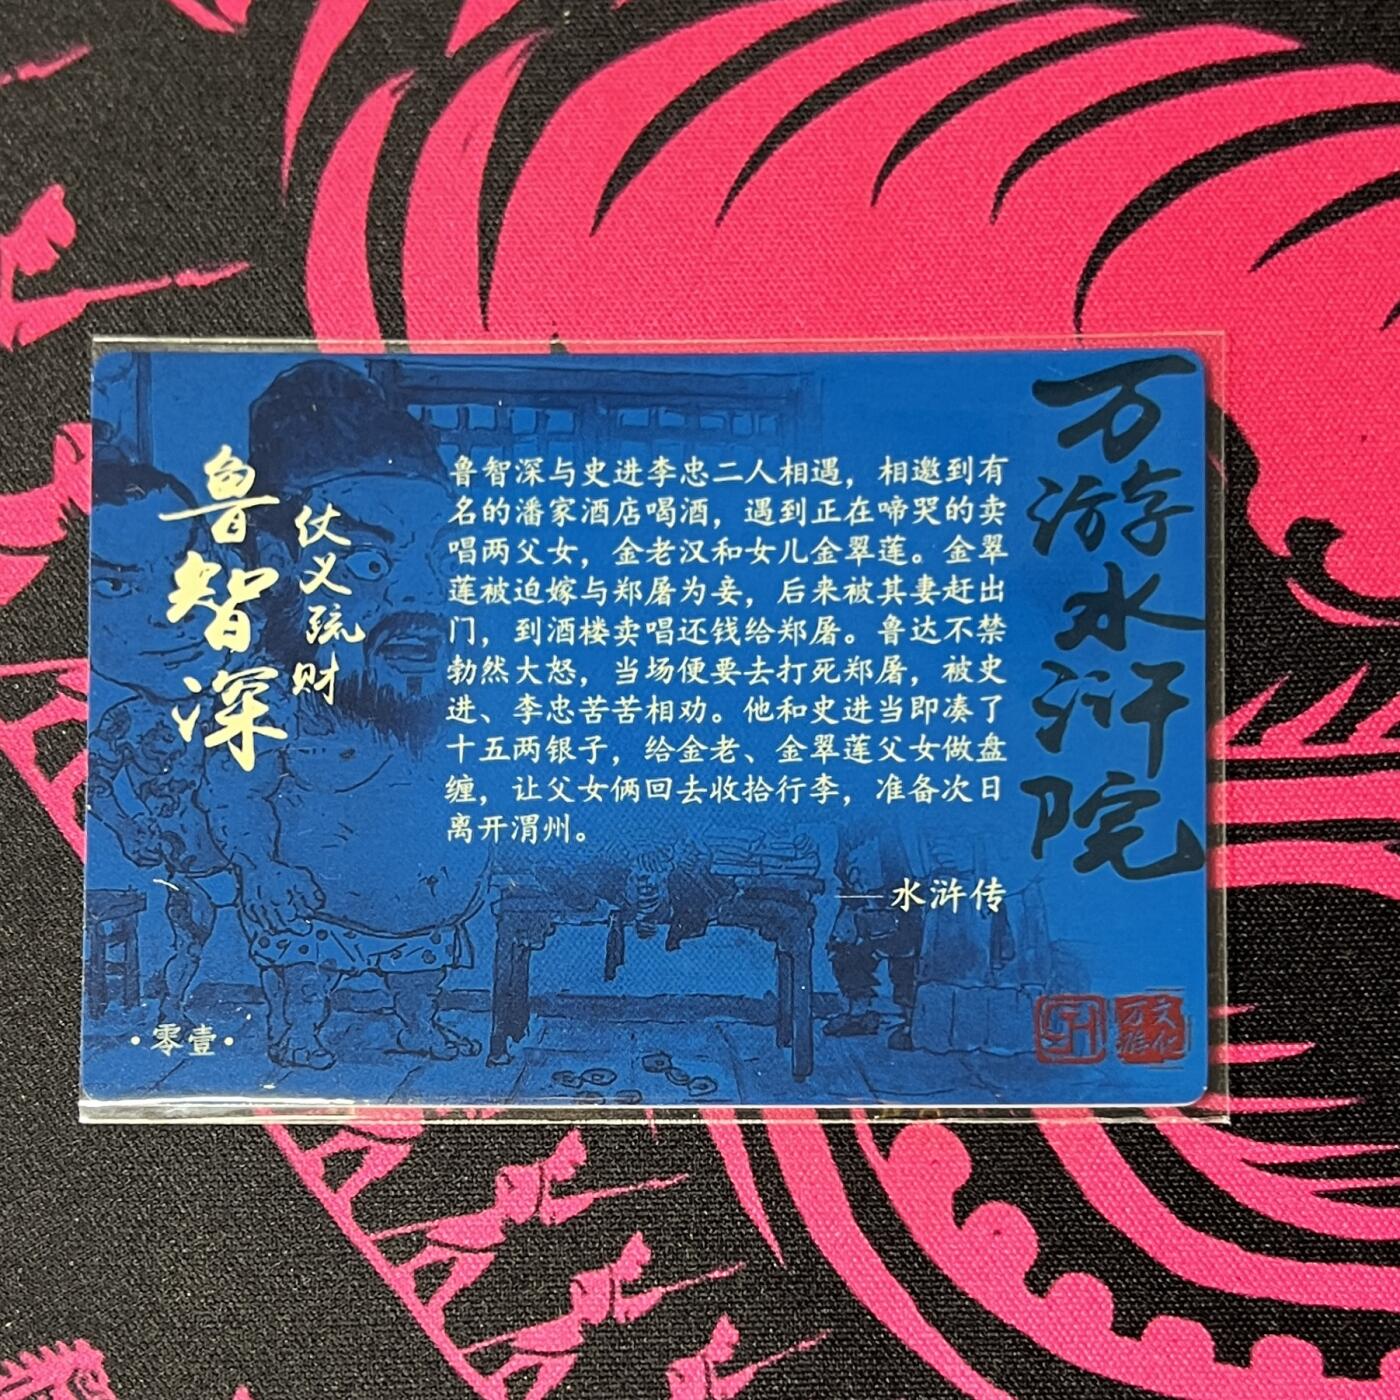 鲁智深
仗义疏财
鲁智深与史进李忠二人相遇，相邀到有
名的潘家酒店喝酒，遇到正在啼哭的卖
唱两父女，金老汉和女儿金翠莲。金翠
莲被迫嫁与郑屠为妾，后来被其妻赶出
门，到酒楼卖唱还钱给郑屠。鲁达不禁
勃然大怒，当场便要去打死郑屠，被史
进、李忠苦苦相劝。他和史进当即凑了
十五两银子，给金老、金翠莲父女做盘
缠，让父女俩回去收拾行李，准备次日
离开渭州。
——水浒传
·零壹·
万游水浒院